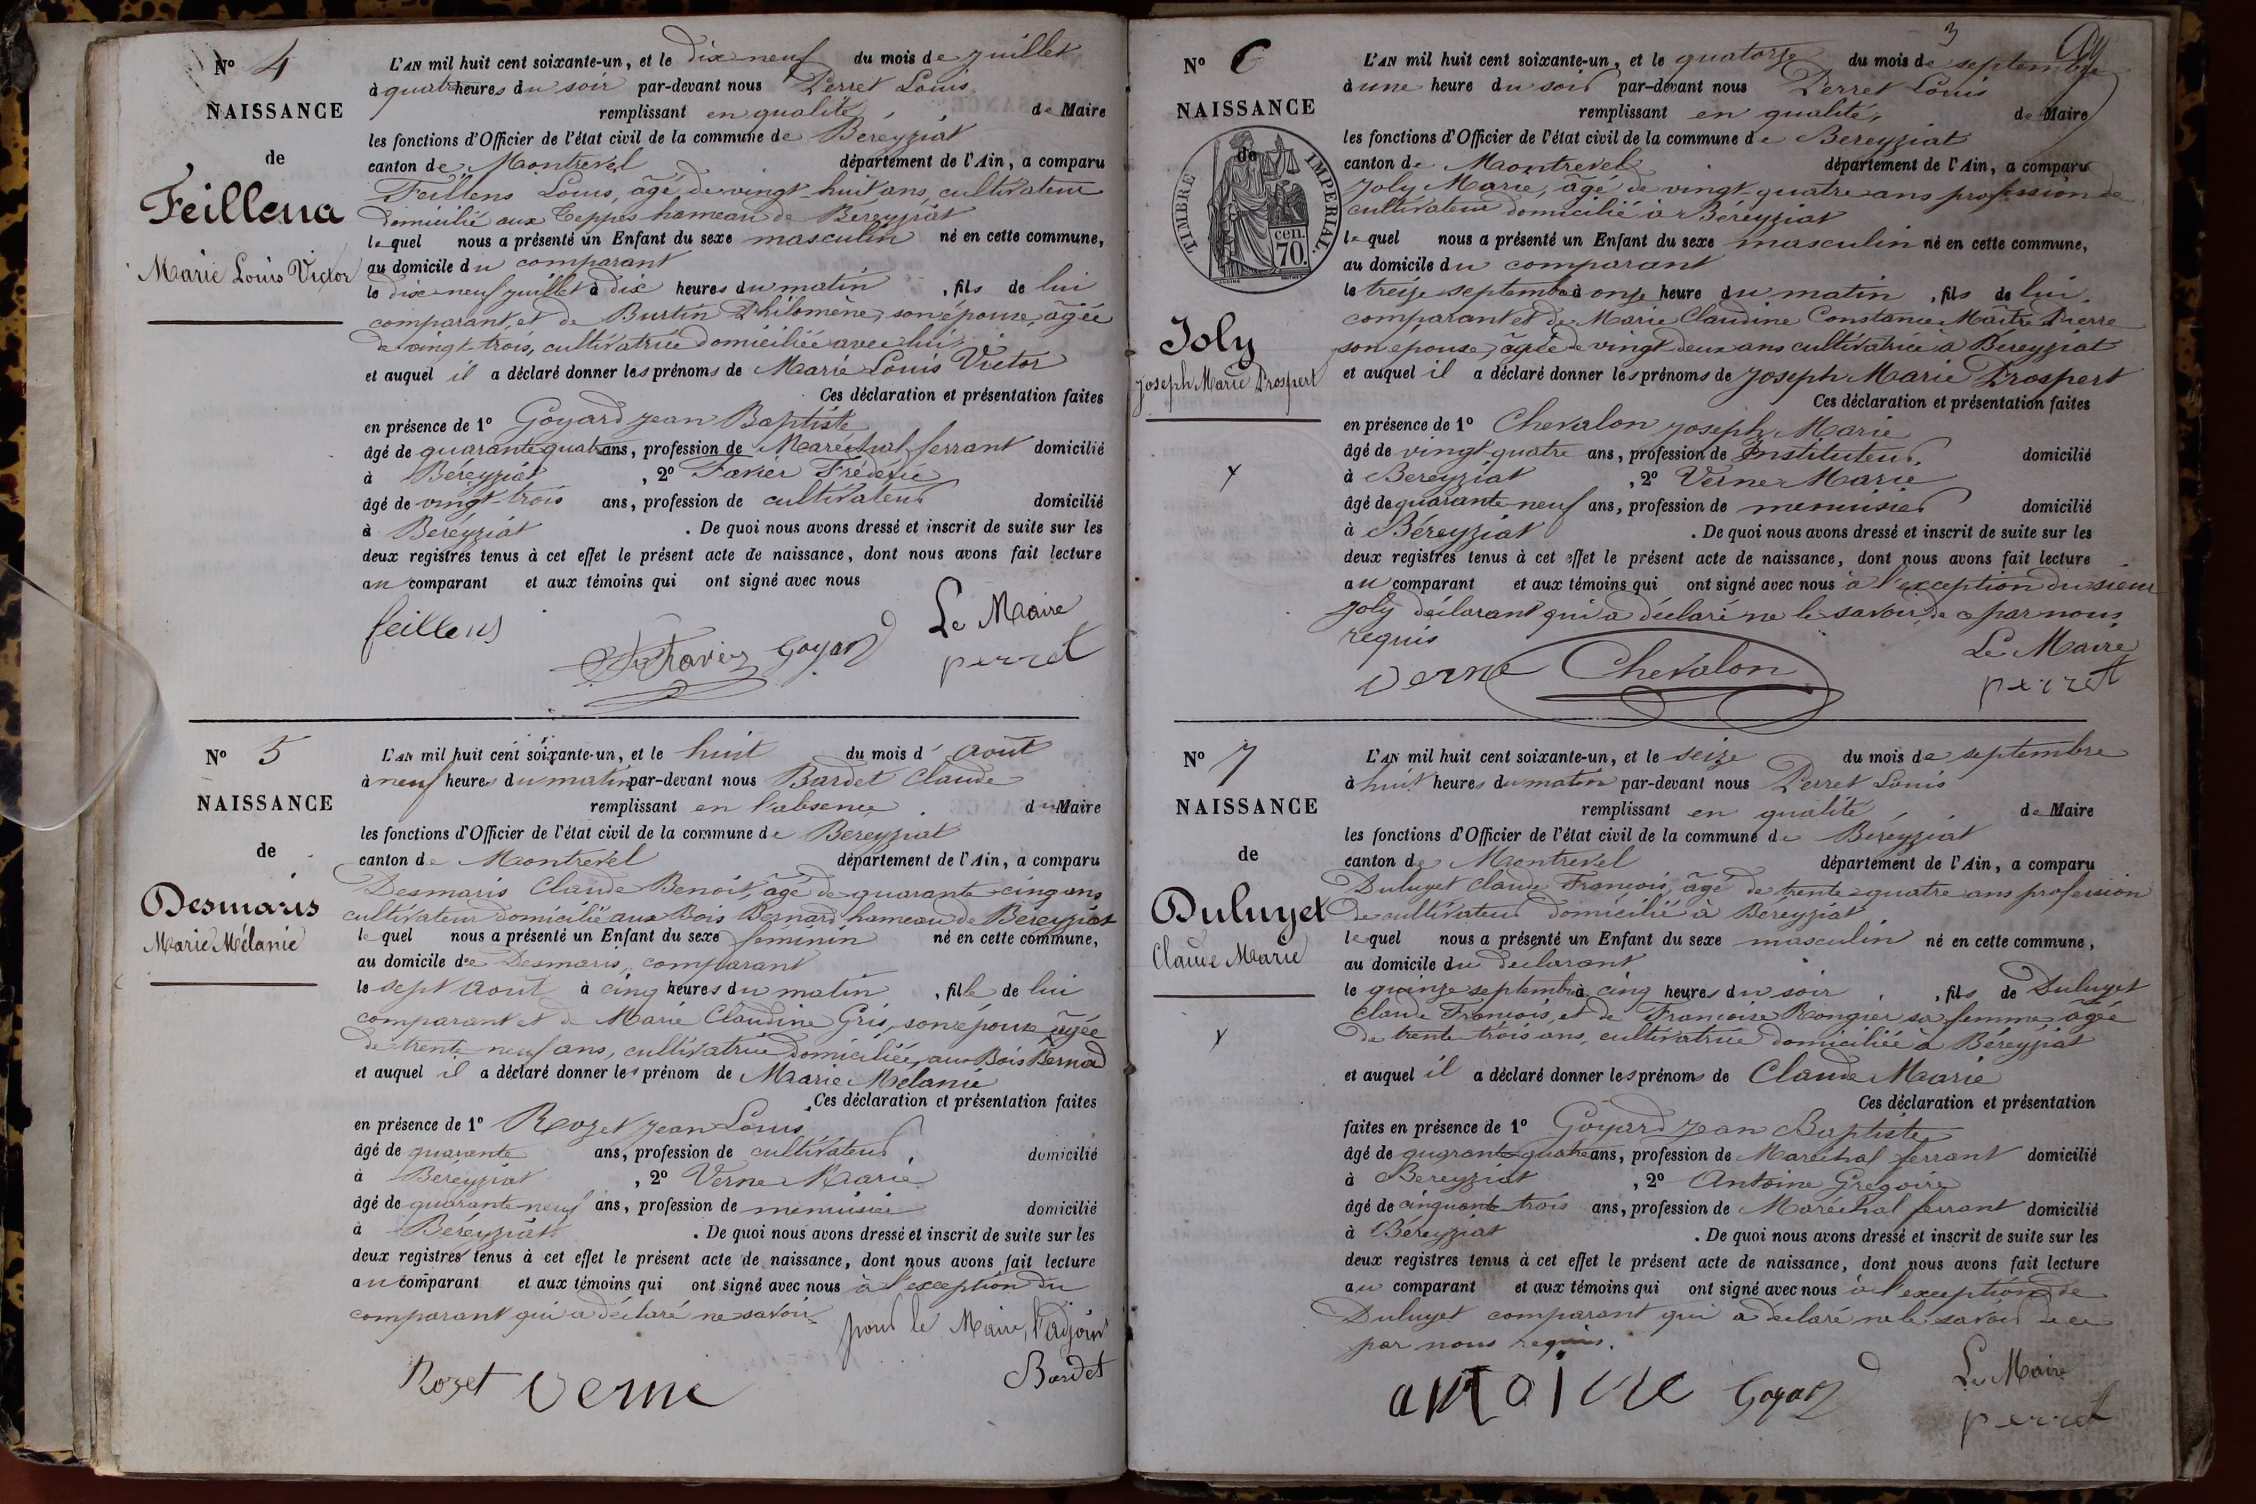 N° 4
NAISSANCE
de
Feillens
Marie Louis Victor
L'AN mil huit cent soixante-un, et le dix neuf du mois de juillet
à quatre heures du soir par-devant nous Perret Louis
remplissant en qualité de Maire
les fonctions d'Officier de l'état civil de la commune de Béreyziat
canton de Montrevel département de l'Ain, a comparu
Feillens Louis, âgé de vingt-huit ans, cultivateur
domicilié aux Teppes hameau de Béreyziat
lequel nous a présenté un Enfant du sexe masculin né en cette commune,
au domicile du comparant
le dix neuf juillet à dix heures du matin, fils de lui
comparant, et de Burtin Philomène, son épouse, âgée
de vingt trois, cultivatrice domiciliée avec lui
et auquel il a déclaré donner les prénoms de Marie Louis Victor
Ces déclaration et présentation faites
en présence de 1° Goyard Jean Baptiste
âgé de quarante quatre ans, profession de Maréchal ferrant domicilié
à Béreyziat, 2° Favier Fréderic
âgé de vingt-trois ans, profession de cultivateur domicilié
à Béreyziat. De quoi nous avons dressé et inscrit de suite sur les
deux registres tenus à cet effet le présent acte de naissance, dont nous avons fait lecture
au comparant et aux témoins qui ont signé avec nous
feillens
Favier Goyard
Le Maire
perret
N° 5
NAISSANCE
de
Desmaris
Marie Mélanie
L'AN mil huit cent soixante-un, et le huit du mois d'août
à neuf heures du matin par-devant nous Bardet Claude
remplissant en l'absence du Maire
les fonctions d'Officier de l'état civil de la commune de Bereyziat
canton de Montrevel département de l'Ain, a comparu
Desmaris Claude Benoit, âgé de quarante-cinq ans
cultivateur domicilié aux Bois Bernard hameau de Bereyziat
lequel nous a présenté un Enfant du sexe féminin né en cette commune,
au domicile de Desmaris, comparant
le sept Aout à cinq heures du matin, fille de lui
comparant et de Marie Claudine Gris, son épouse âgée
de trente neuf ans, cultivatrice domiciliée, aux Bois Bernad
et auquel il a déclaré donner les prénom de Marie Mélanie
Ces déclaration et présentation faites
en présence de 1° Rozet Jean Louis
âgé de quarante ans, profession de cultivateur domicilié
à Béreyziat, 2° Verne Marie
âgé de quarante neuf ans, profession de menuisier domicilié
à Béreyziat. De quoi nous avons dressé et inscrit de suite sur les
deux registres tenus à cet effet le présent acte de naissance, dont nous avons fait lecture
au comparant et aux témoins qui ont signé avec nous à l'exception du
comparant qui a déclaré ne savoir
pour le Maire, l'adjoint
Rozet verne
Bardet
3
N° 6
NAISSANCE
de
TIMBRE IMPERIAL.
70. cen.
Joly
Joseph Marie Prospert
L'AN mil huit cent soixante-un, et le quatorze du mois de septembre
à une heure du soir par-devant nous Perret Louis
remplissant en qualité, de Maire
les fonctions d'Officier de l'état civil de la commune de Bereyziat
canton de Montrevel département de l'Ain, a comparu
Joly Marie, âgé de vingt quatre ans profession de
cultivateur domicilié à Béreyziat
lequel nous a présenté un Enfant du sexe masculin né en cette commune,
au domicile du comparant
le treize septembre à onze heure du matin, fils de lui
comparant et de Marie Claudine Constance Maître Pierre
son epouse, âgée de vingt deux ans cultivatrice à Béreyziat
et auquel il a déclaré donner les prénoms de Joseph Marie Prospert
Ces déclaration et présentation faites
en présence de 1° Chevalon Joseph Marie
âgé de vingt-quatre ans, profession de Instituteur, domicilié
à Bereyziat, 2° Verne Marie
âgé de quarante neuf ans, profession de menuisier domicilié
à Béreyziat. De quoi nous avons dressé et inscrit de suite sur les
deux registres tenus à cet effet le présent acte de naissance, dont nous avons fait lecture
au comparant et aux témoins qui ont signé avec nous à l'exception du sieur
Joly déclarant qui a déclaré ne le savoir de ce par nous
requis
verne Chevalon
Le Maire
perret
N° 7
NAISSANCE
de
Duluyet
Claude Marie
L'AN mil huit cent soixante-un, et le seize du mois de septembre
à huit heures du matin par-devant nous Perret Louis
remplissant en qualité de Maire
les fonctions d'Officier de l'état civil de la commune de Béreyziat
canton de Montrevel département de l'Ain, a comparu
Duluyet Claude François, âgé de trente-quatre ans profession
de cultivateur domicilié à Béreyziat
lequel nous a présenté un Enfant du sexe masculin né en cette commune,
au domicile du déclarant
le quinze septembre à cinq heures du soir, fils de Duluyet
Claude François, et de Françoise Rongier sa femme âgée
de trente trois ans, cultivatrice domiciliée à Béreyziat
et auquel il a déclaré donner les prénoms de Claude Marie
Ces déclaration et présentation
faites en présence de 1° Goyard Jean Baptiste
âgé de quarante-quatre ans, profession de Maréchal ferrant domicilié
à Bereyziat, 2° Antoine Gregoire
âgé de cinquante trois ans, profession de Maréchal ferrant domicilié
à Béreyziat. De quoi nous avons dressé et inscrit de suite sur les
deux registres tenus à cet effet le présent acte de naissance, dont nous avons fait lecture
au comparant et aux témoins qui ont signé avec nous à l'exception de
Duluyet comparant qui a déclaré ne le savoir de ce
par nous requis.
antoine Goyard
Le Maire
perret